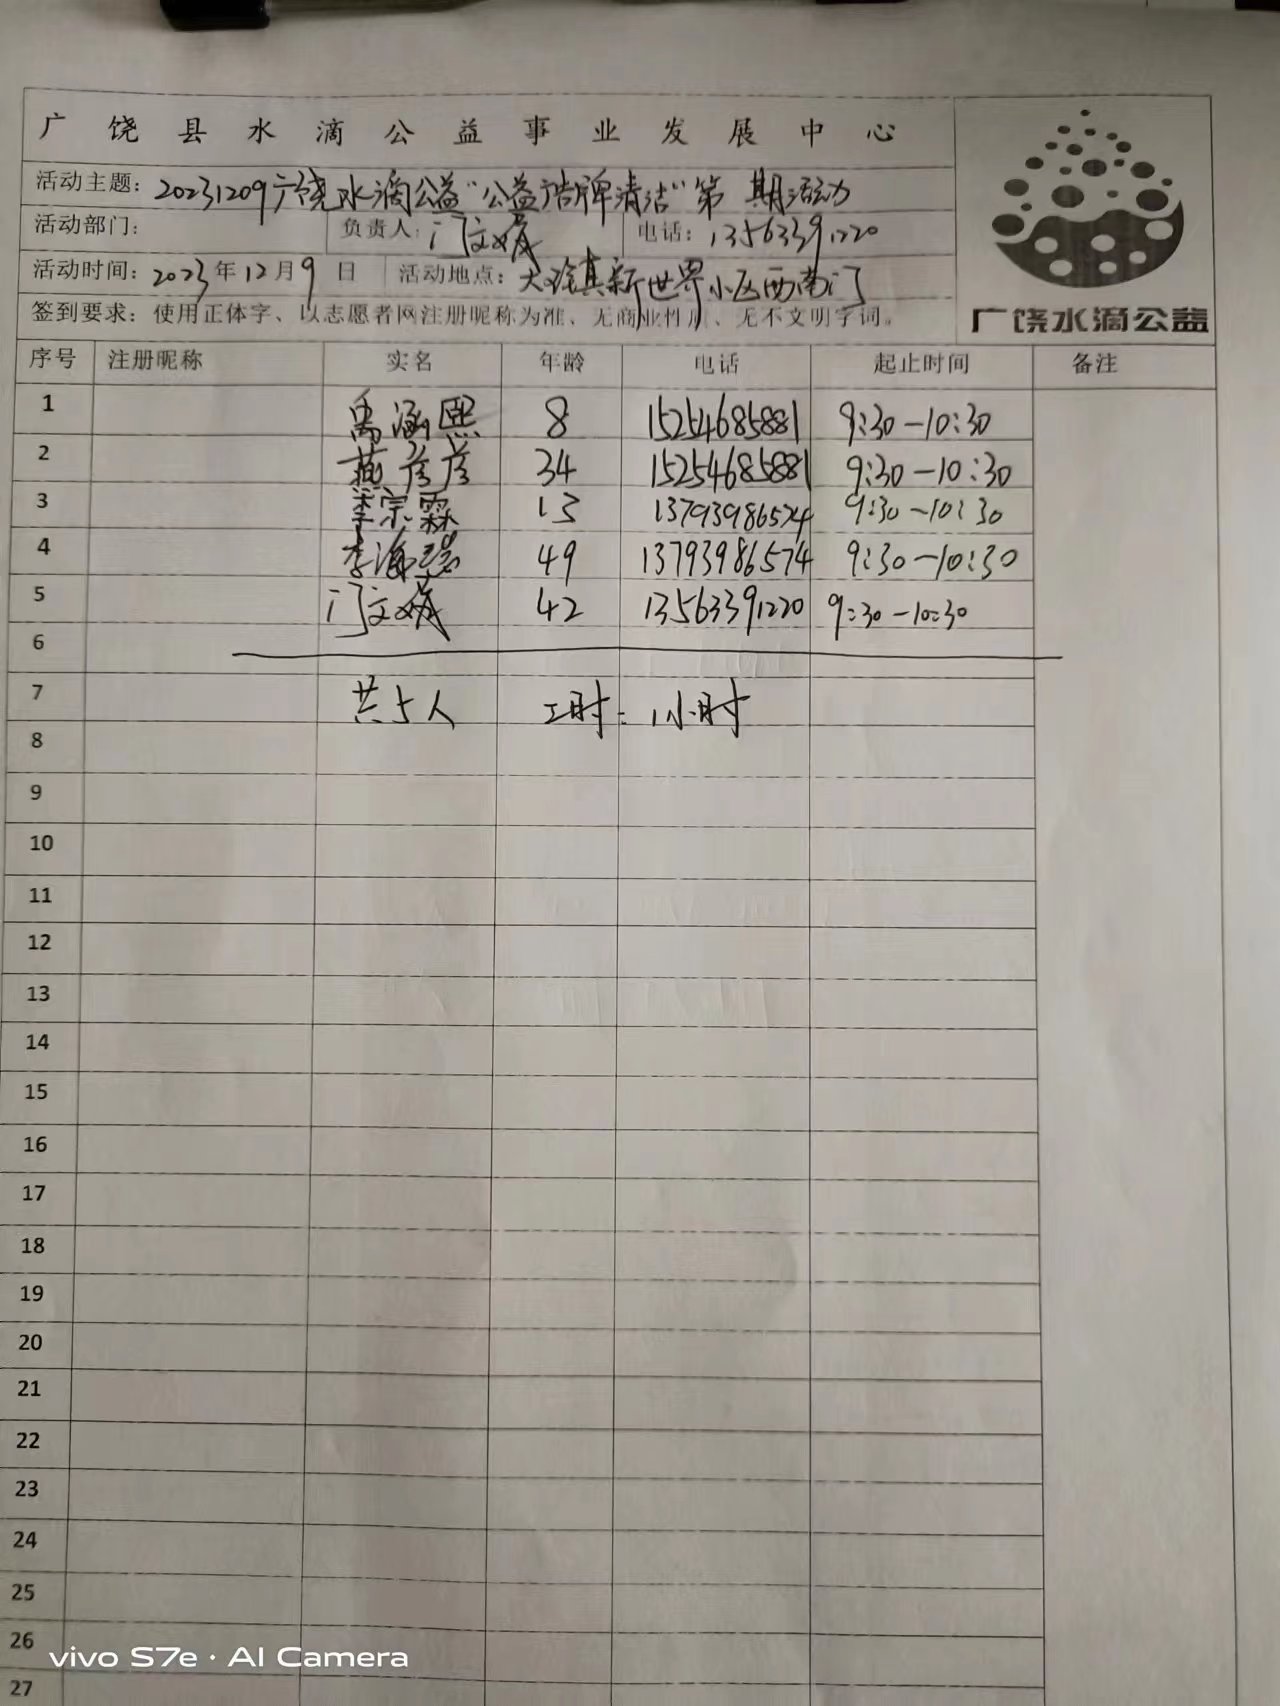 广饶县水滴公益事业发展中心
活动主题：20231209广饶水滴公益“公益广告牌清洁”第 期活动
活动部门： 负责人：门文 电话：13563391220
活动时间：2023年12月9日 活动地点：大 镇新世界小区西南门
签到要求：使用正体字、以志愿者网注册昵称为准、无商业性质、无不文明字词。
广饶水滴公益
序号 注册昵称 实名 年龄 电话 起止时间 备注
1 禹涵熙 8 15254685881 9:30-10:30
2 燕彦彦 34 15254685881 9:30-10:30
3 李宗霖 13 13793986574 9:30-10:30
4 李海 49 13793986574 9:30-10:30
5 门文 42 13563391220 9:30-10:30
6
7 共5人 工时：1小时
8
9
10
11
12
13
14
15
16
17
18
19
20
21
22
23
24
25
26
27
vivo S7e · AI Camera